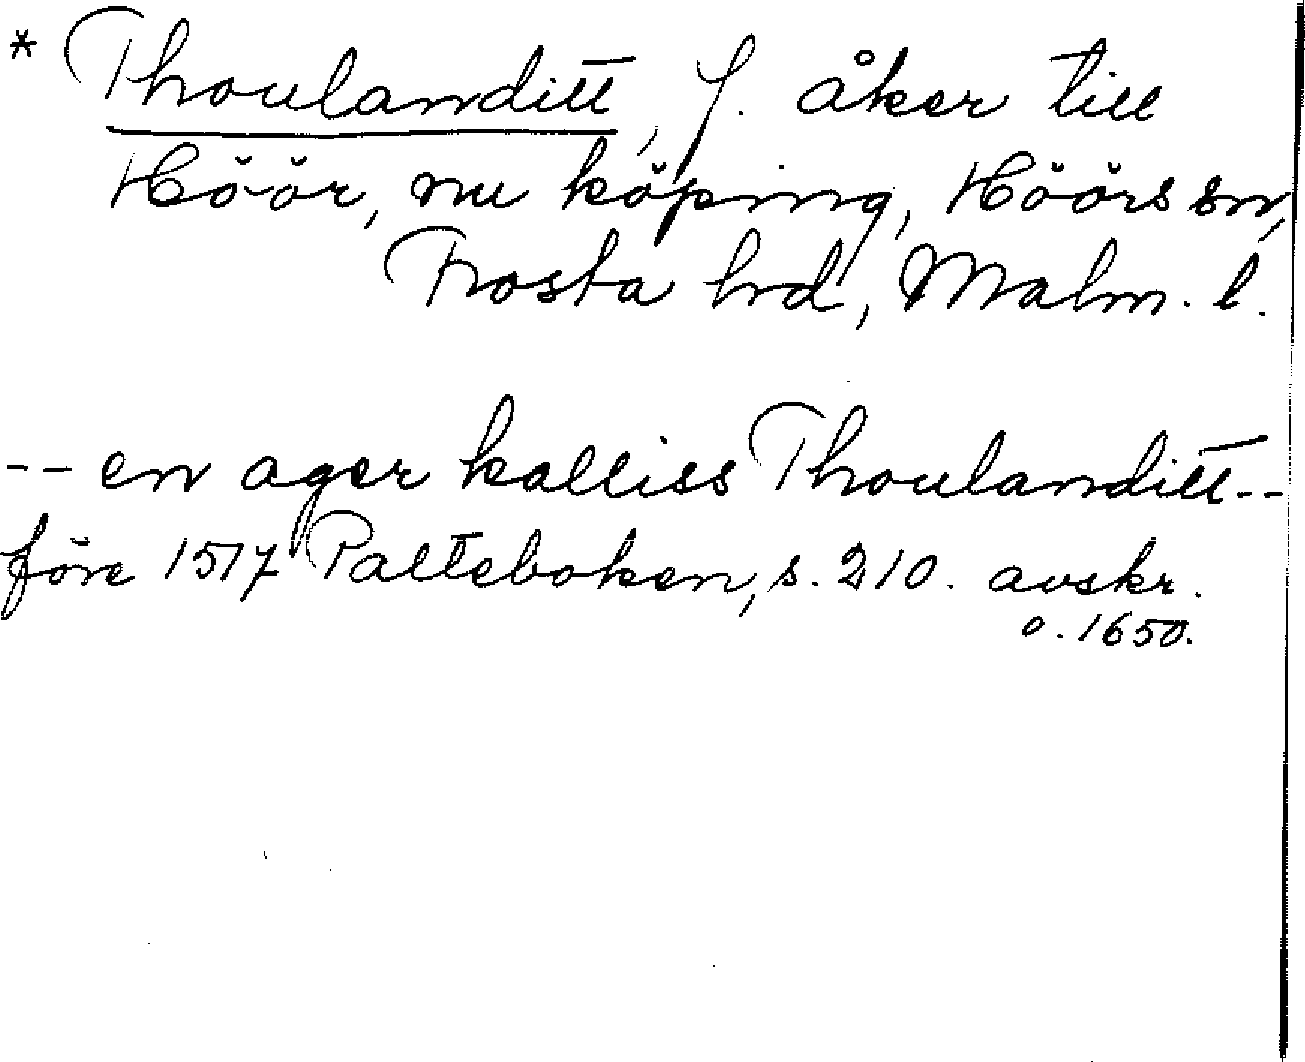 * Thoulanditt, f. åker till
Höör, nu köping, Höörs sn,
Frosta hrd, Malm. l.
-- en ager kalliss Thoulanditt --
före 1517 Palteboken, s. 210. avskr.
o. 1650.